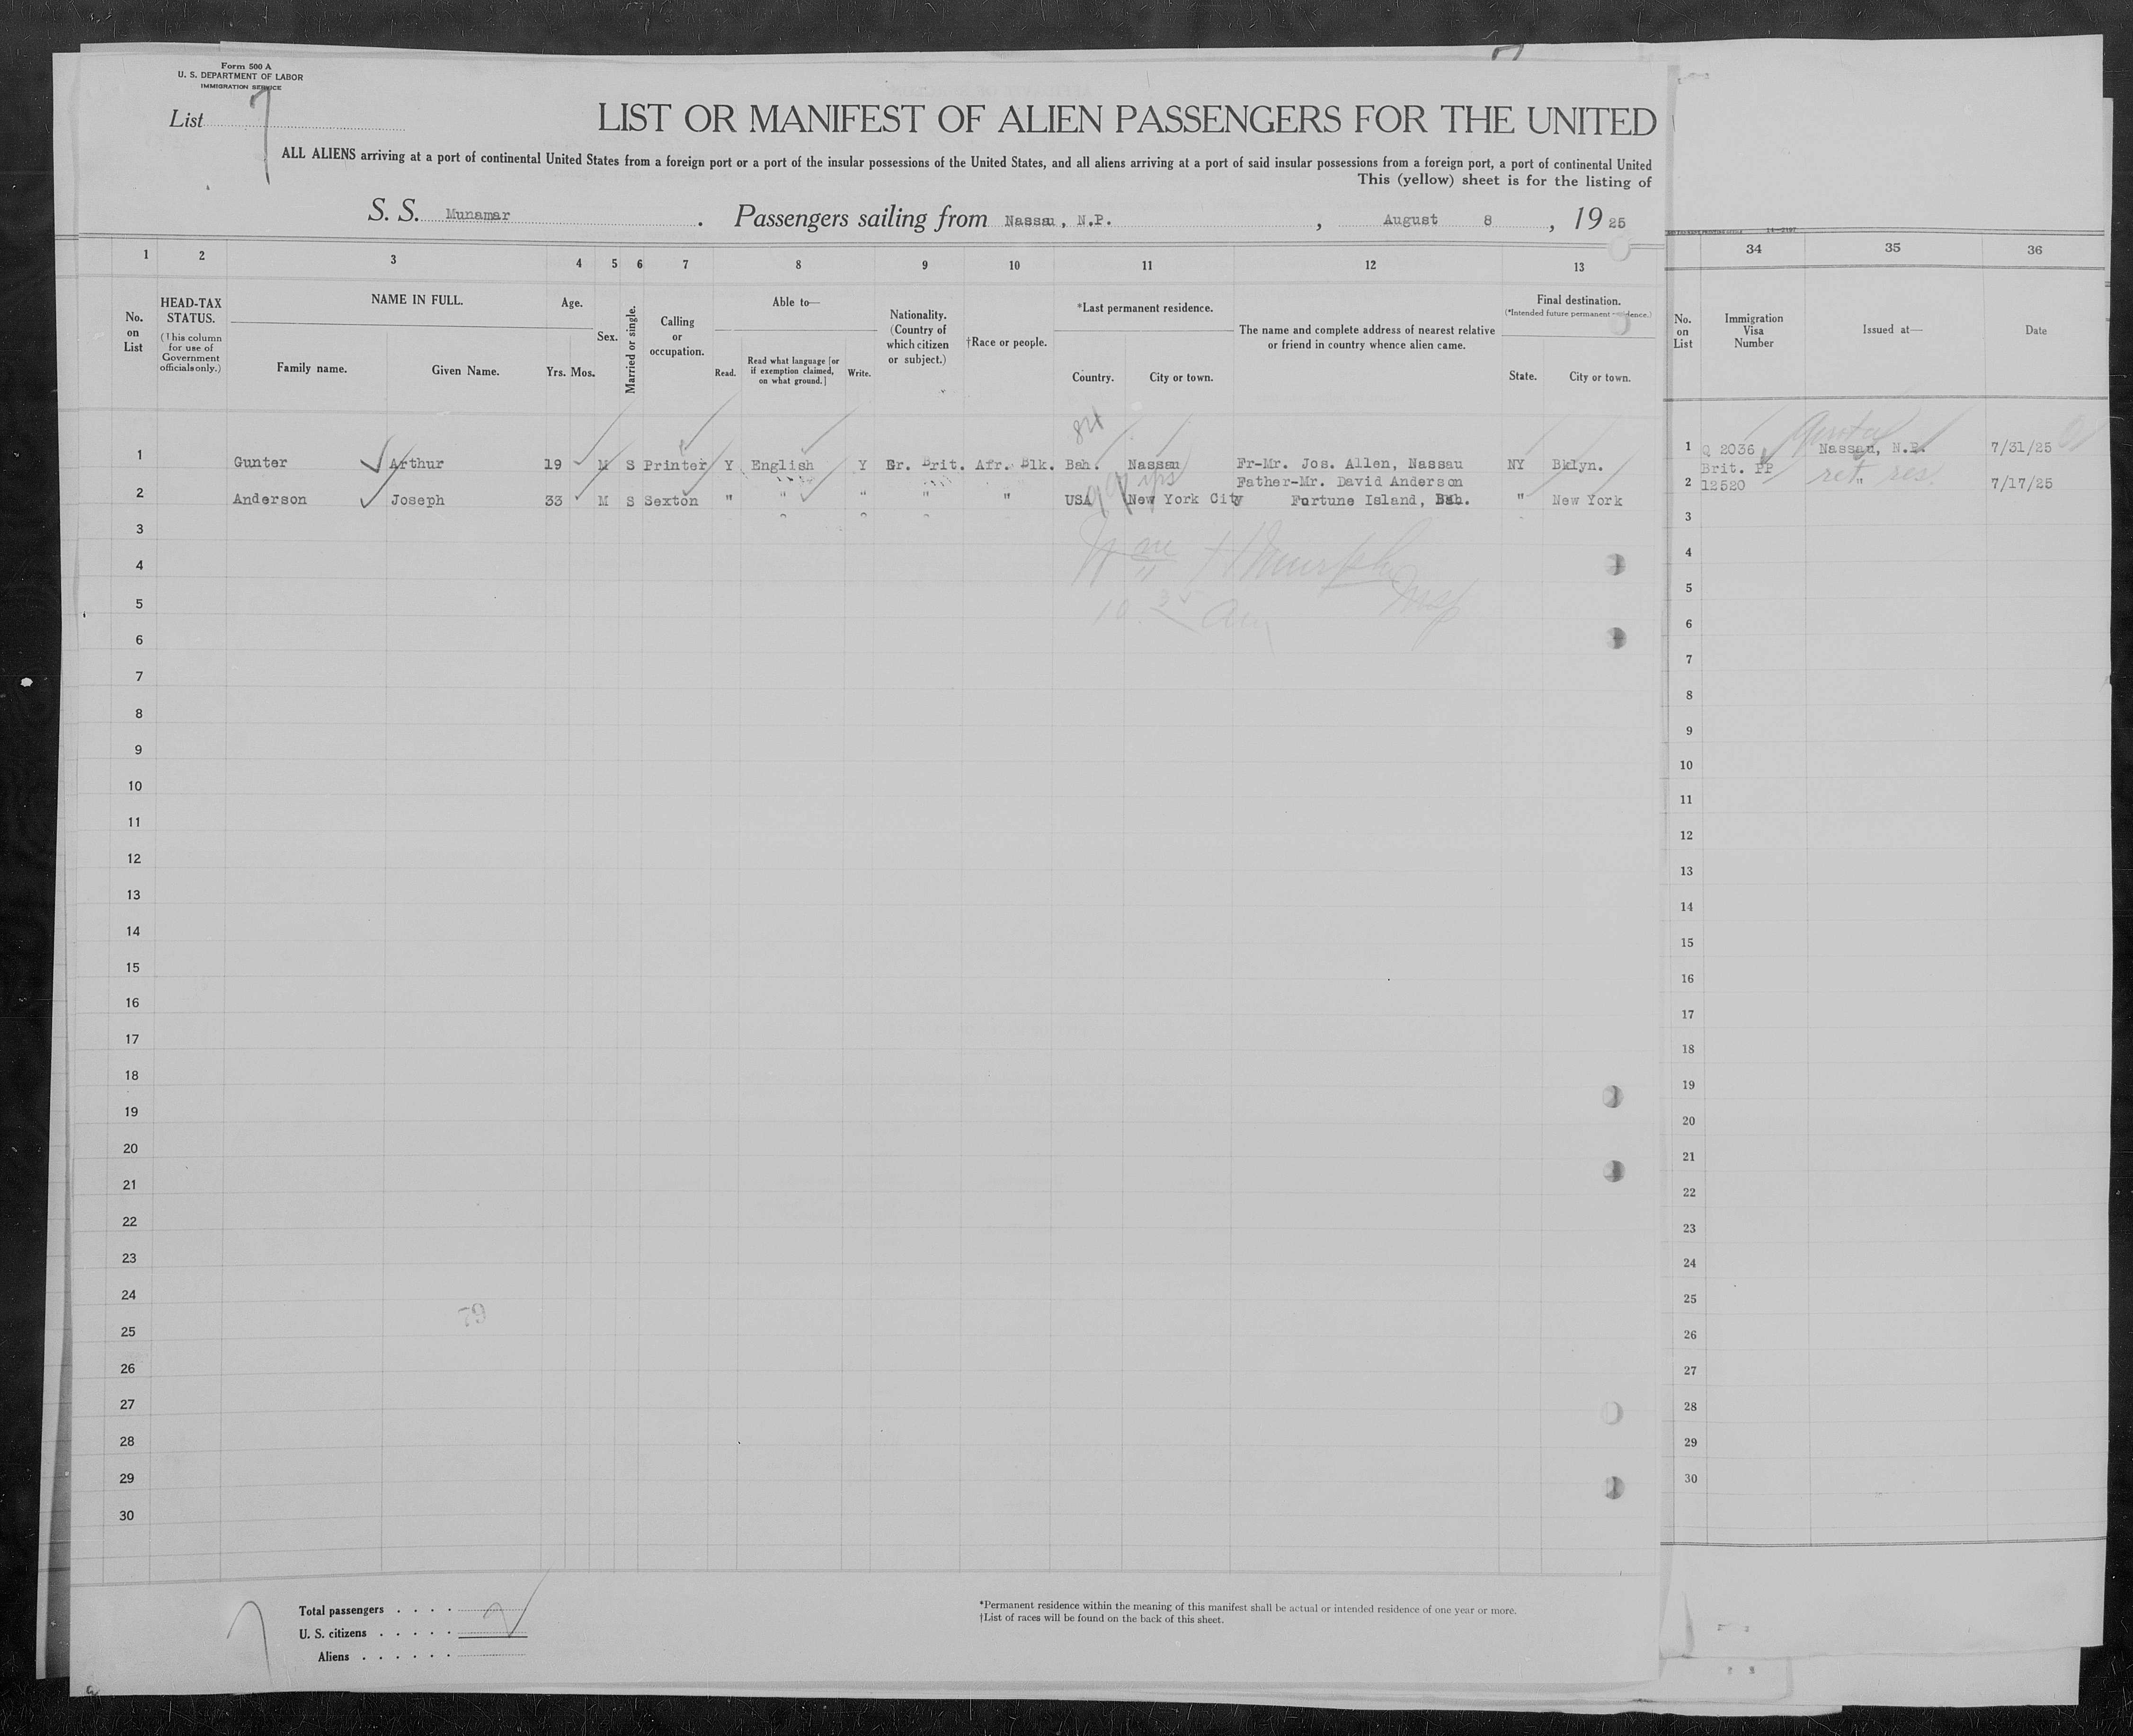 Form 500 A
U. S. DEPARTMENT OF LABOR
IMMIGRATION SERVICE
List 7
LIST OR MANIFEST OF ALIEN PASSENGERS FOR THE UNITED
ALL ALIENS arriving at a port of continental United States from a foreign port or a port of the insular possessions of the United States, and all aliens arriving at a port of said insular possessions from a foreign port, a port of continental United
This (yellow) sheet is for the listing of
S. S. Munamar. Passengers sailing from Nassau, N.P., August 8, 1925
1 2 3 4 5 6 7 8 9 10 11 12 13 34 35 36
No. on List
HEAD-TAX STATUS.
(This column for use of Government officials only.)
NAME IN FULL.
Family name. Given Name.
Age.
Yrs. Mos.
Sex.
Married or single.
Calling or occupation.
Able to—
Read. Read what language [or if exemption claimed, on what ground.] Write.
Nationality. (Country of which citizen or subject.)
†Race or people.
*Last permanent residence.
Country. City or town.
The name and complete address of nearest relative or friend in country whence alien came.
Final destination.
(*Intended future permanent residence.)
State. City or town.
No. on List
Immigration Visa Number
Issued at—
Date
84
1 Gunter Arthur 19 M S Printer Y English Y Gr. Brit. Afr. Blk. Bah. Nassau Fr-Mr. Jos. Allen, Nassau NY Bklyn. 1 Q 2036 Nassau, N.P. 7/31/25
Father-Mr. David Anderson Brit. PP ret res.
2 Anderson Joseph 33 M S Sexton " " " " " USA New York City Fortune Island, Bah. " New York 2 12520 " 7/17/25
3 3
4 4
5 5
6 6
7 7
8 8
9 9
10 10
11 11
12 12
13 13
14 14
15 15
16 16
17 17
18 18
19 19
20 20
21 21
22 22
23 23
24 24
79
25 25
26 26
27 27
28 28
29 29
30 30
Total passengers . . . . 2
U. S. citizens . . . . .
Aliens . . . . . .
*Permanent residence within the meaning of this manifest shall be actual or intended residence of one year or more.
†List of races will be found on the back of this sheet.